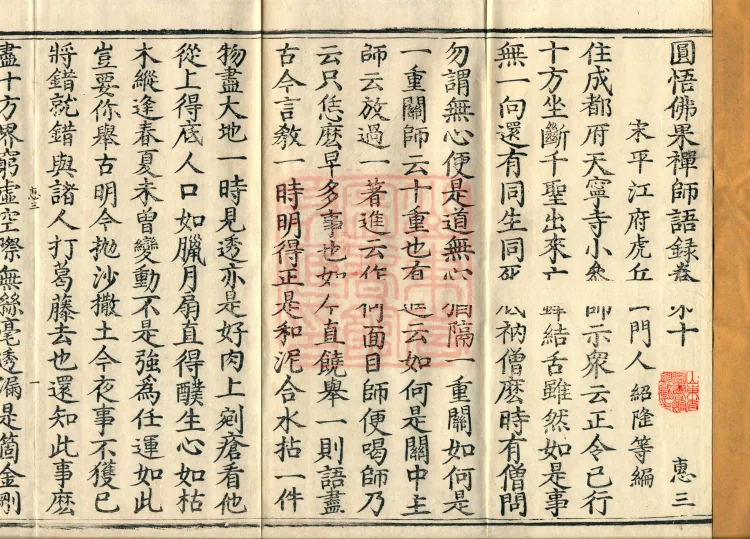 圓悟佛果禪師語錄卷第十 惠三
宋平江府虎丘門人紹隆等編
住成都府天寧寺小叅師示衆云正令已行
十方坐斷千聖出來亡鋒結舌雖然如是事
無一向還有同生同死底衲僧麽時有僧問
勿謂無心便是道無心猶隔一重關如何是
一重關師云十重也有進云如何是關中主
師云放過一著進云作何面目師便喝師乃
云只恁麽早多事也如今直饒舉一則語盡
古今言教一時明得正是和泥合水拈一件
物盡大地一時見透亦是好肉上剜瘡看他
從上得底人口如臘月扇直得醭生心如枯
木縱逢春夏未曾變動不是強為任運如此
豈要你舉古明今拋沙撒土今夜事不獲已
將錯就錯與諸人打葛藤去也還知此事麽
惠三 一
盡十方界窮虛空際無絲毫透漏是箇金剛